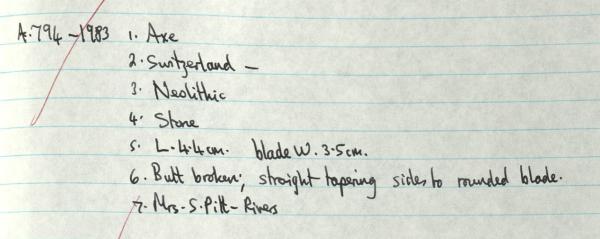 A.794-1983 1. Axe
2. Switzerland -
3. Neolithic
4. Stone
5. L. 4.4cm. blade W. 3.5cm.
6. Butt broken; straight tapering sides to rounded blade.
7. Mrs. S. Pitt-Rivers